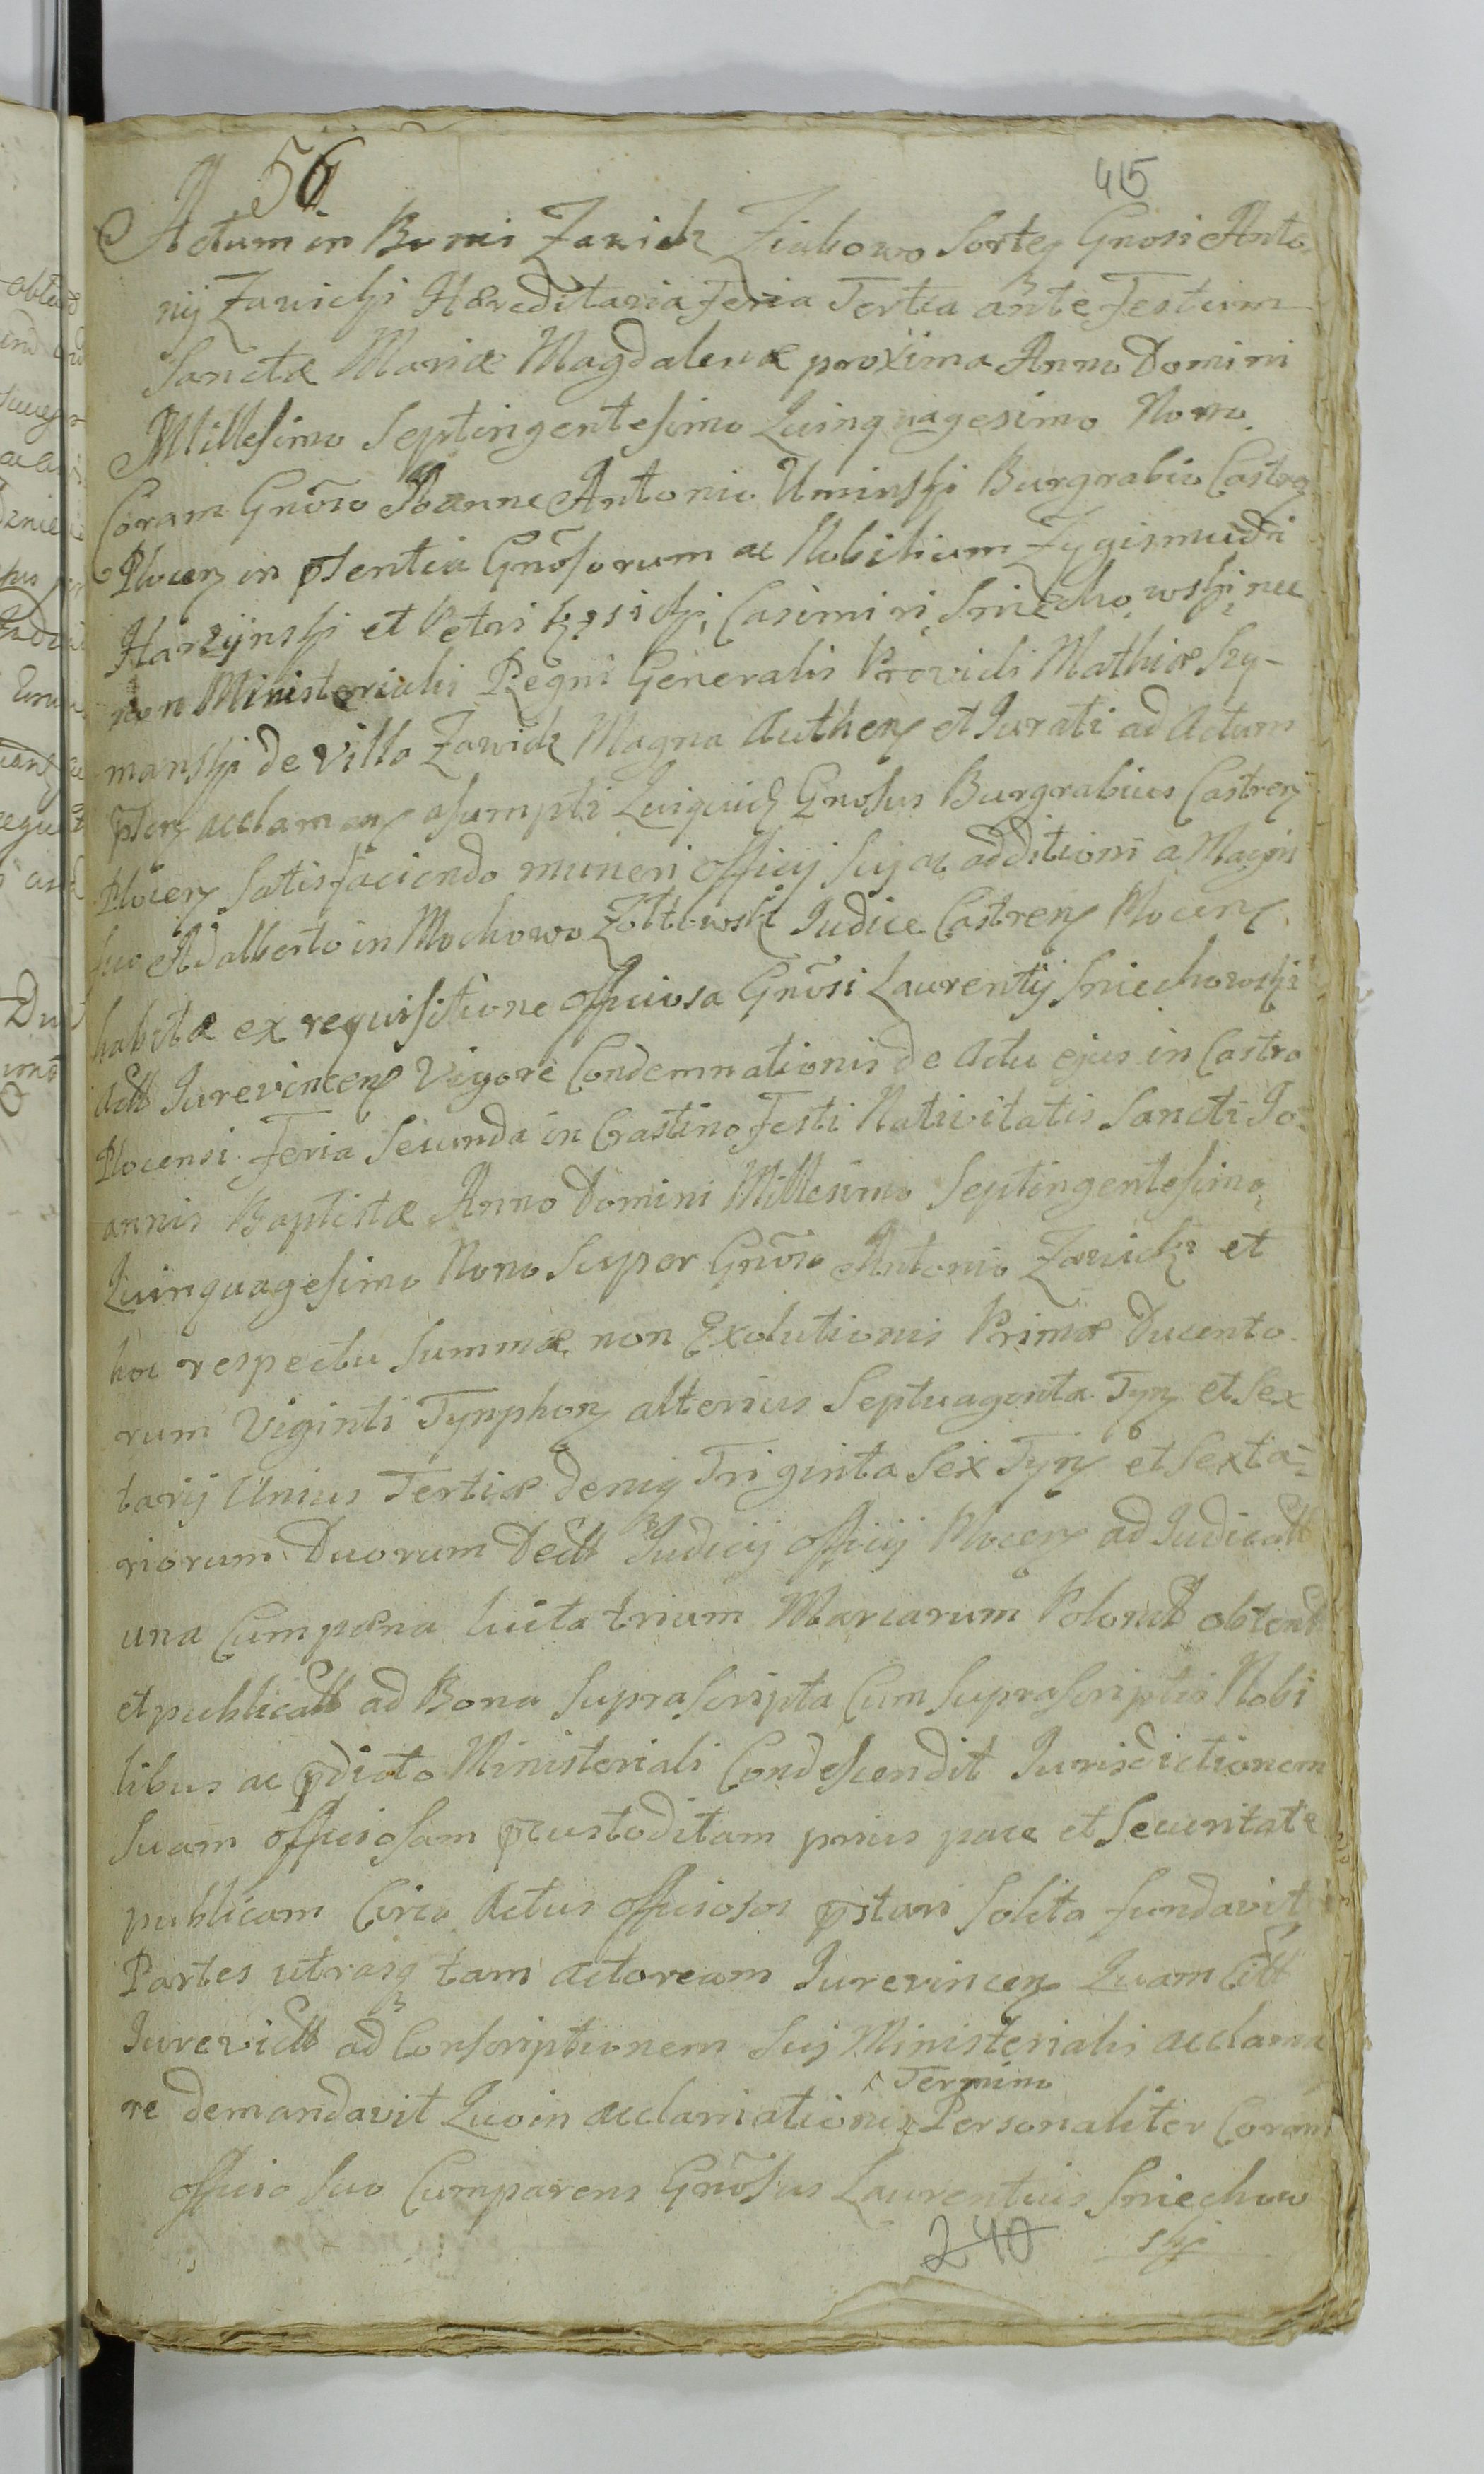 56
415
Actum in Bonis Zawidz Ziabowo Sorteq Gnosi Anto-
nij Zawidzki Hæreditaria Feria Tertia ante Festum
Sanctæ Mariæ Magdalenæ proxima Anno Domini
Millesimo Septingentesimo Quinquagesimo Nono.
Coram Gnõso Joanne Antonio Uminski Burgrabio Castren
Plocen in pñsentia Gnõsorum ac Nobilium Zygismudi
et Petri Casimiri Sniechowski nec
non Ministerialis Regni Generalis Providi Mathiæ Szy-
manski de Villa Zawidz Magna Authen et Jurati ad Actum
pñten acclaman assumpti Quiquid Gnosus Burgrabius Castren
Plocen Satisfaciendo muneri officij Sui ac additioni a Magni
fico Adalberto in Mochowo Zółtowski Judice Castren Plocen
habitæ ex requisitione officiosa Gnõsi Laurentij Sniechowski
Act Jurevincen Vigore Condemnationis de Actu ejus in Castro
Plocensi Feria Secunda in Crastino Festi Nativitatis Sancti Jo-
annis Baptistæ Anno Domini Millesimo Septingentesimo
Quinquagesimo Nono Super Gnõso Antonio Zawidzki et
hoc respectu Summæ non Exolutionis Primæ Ducento
rum Viginti Tynphon alterius Septuaginta Tyn et Sex
tarij Unius Tertiæ deniq Triginta Sex Tyn et Sexta-
riorum Duorum Dectt Judicij officij Plocen ad Judicatt
una Cum pæna luita trium Marcarum Polonictt obtent
et publicatt ad Bona Suprascripta Cum Suprascriptis Nobi
libus ac pdicto Ministeriali Condescendit Jurisdictionem
Suam officiosam pcustoditam prius pace et Securitate
publicam Circa Actus officiosos pstari Solita fundavit
Partes utrasq tam Actoream Jurevincen Quam Citt
Jurevictt ad Conscriptionem Sui Ministerialis acclama
re demandavit Quoin acclamationis Termino Personaliter Coram
officio Suo Comparens Gnõsus Laurentius Sniechow
ski
240